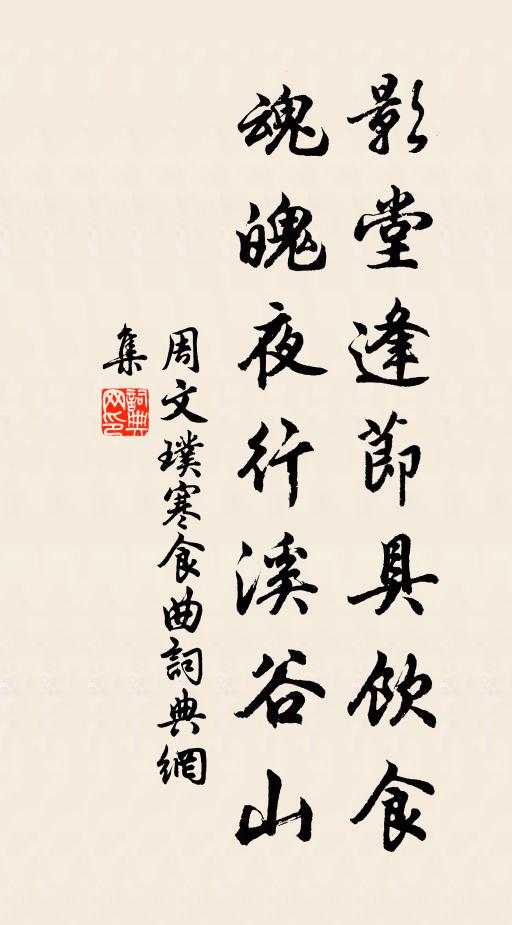 影堂逢節具飲食
魂魄夜行溪谷山
周文璞寒食曲詞典網
集
詞典
网印